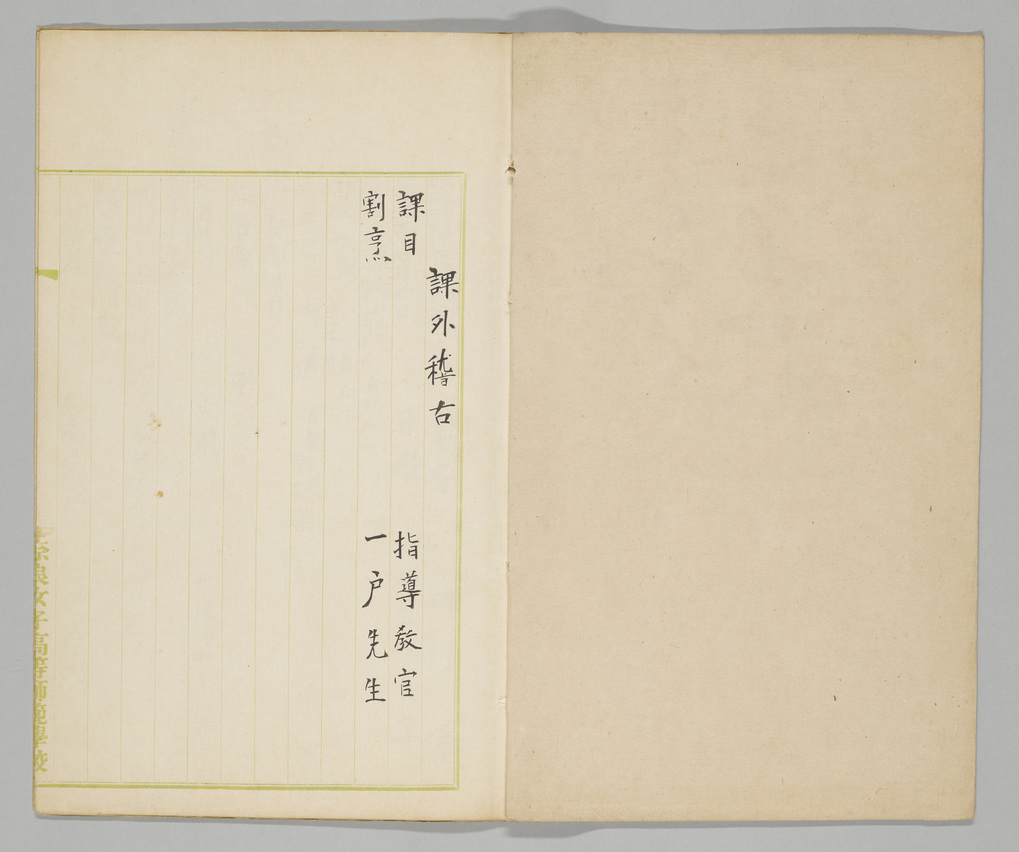 課外稽古
課目　指導教官
割烹　一戸先生
奈良女子高等師範學校